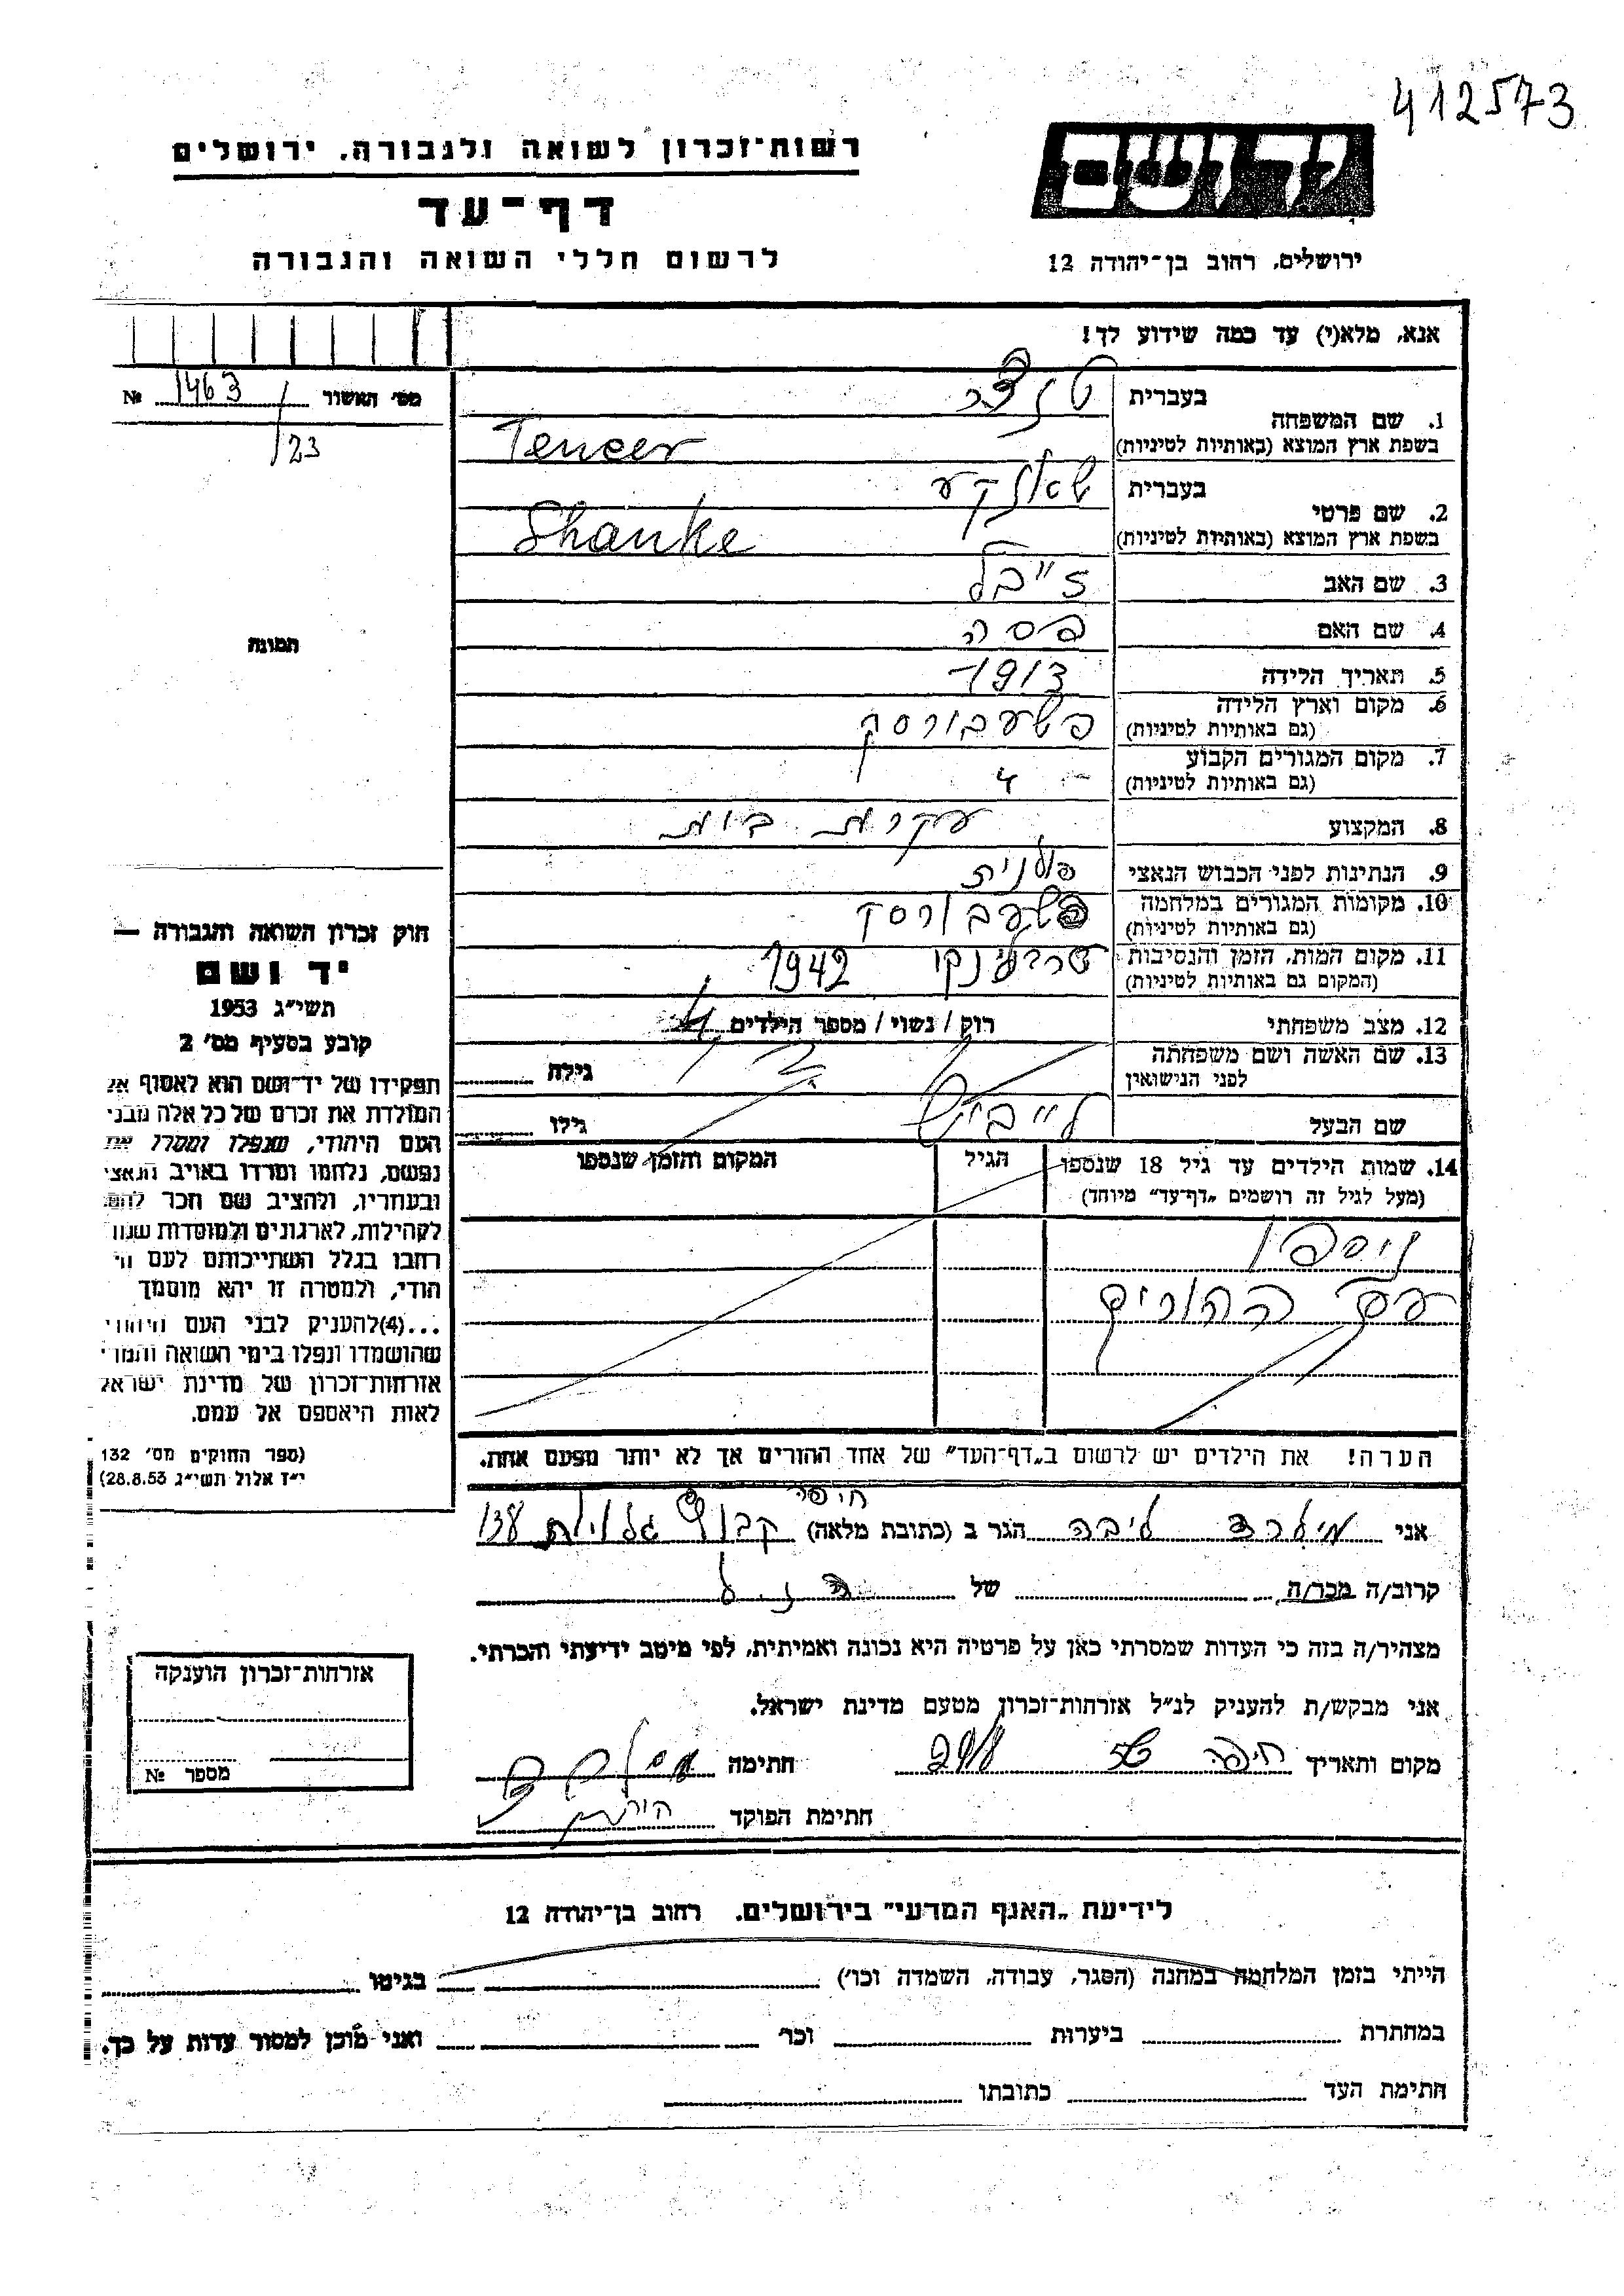 412573
ידושם
רשות־זכרון לשואה ולגבורה, ירושלים
דף־עד
לרשום חללי השואה והגבורה
ירושלים, רחוב בן־יהודה 12
אנא, מלא(י) עד כמה שידוע לך!
מס׳ האשור 1463 №
/23
תמונה
1. שם המשפחה
בעברית טנצר
בשפת ארץ המוצא (באותיות לטיניות) Tencer
2. שם פרטי
בעברית שאנקע
בשפת ארץ המוצא (באותיות לטיניות) Shanke
3. שם האב זייבל
4. שם האם פסה
5. תאריך הלידה 1913
6. מקום וארץ הלידה פשעבורסק
(גם באותיות לטיניות)
7. מקום המגורים הקבוע
(גם באותיות לטיניות)
8. המקצוע עקרת בית
9. הנתינות לפני הכבוש הנאצי פולנית
10. מקומות המגורים במלחמה פשעבורסק
(גם באותיות לטיניות)
11. מקום המות, הזמן והנסיבות 1942
(המקום גם באותיות לטיניות)
12. מצב משפחתי רוק / נשוי / מספר הילדים
13. שם האשה ושם משפחתה גילה
לפני הנישואין
שם הבעל לייביש גילו
14. שמות הילדים עד גיל 18 שנספו הגיל המקום והזמן שנספו
(מעל לגיל זה רושמים „דף־עד״ מיוחד)
ניספו
עם ההורים
הערה! את הילדים יש לרשום ב„דף־העד״ של אחד ההורים אך לא יותר מפעם אחת.
חוק זכרון השואה והגבורה —
יד ושם
תשי״ג 1953
קובע בסעיף מס׳ 2
תפקידו של יד־ושם הוא לאסוף אל
המולדת את זכרם של כל אלה מבני
העם היהודי, שנפלו ומסרו את
נפשם, נלחמו ומרדו באויב הנאצי
ובעוזריו, ולהציב שם וזכר להם,
לקהילות, לארגונים ולמוסדות שנח
רחבו בגלל השתייכותם לעם הי
הודי, ולמטרה זו יהא מוסמך
...(4)להעניק לבני העם היהודי
שהושמדו ונפלו בימי השואה והמרי
אזרחות־זכרון של מדינת ישראל
לאות היאספם אל עמם.
(ספר החוקים מס׳ 132
י״ז אלול תשי״ג 28.8.53)
חיפה
אני מילרד ליבה הגר ב (כתובת מלאה) קבוץ גלויות 138
קרוב/ה מכר/ה של
מצהיר/ה בזה כי העדות שמסרתי כאן על פרטיה היא נכונה ואמיתית, לפי מיטב ידיעתי והכרתי.
אני מבקש/ת להעניק לנ״ל אזרחות־זכרון מטעם מדינת ישראל.
מקום ותאריך חיפה חתימה
חתימת הפוקד
אזרחות־זכרון הוענקה
מספר №
לידיעת „האגף המדעי״ בירושלים. רחוב בן־יהודה 12
הייתי בזמן המלחמה במחנה (הסגר, עבודה, השמדה וכו׳) בגיטו
במחתרת ביערות וכו׳ ואני מוכן למסור עדות על כך.
חתימת העד כתובתו